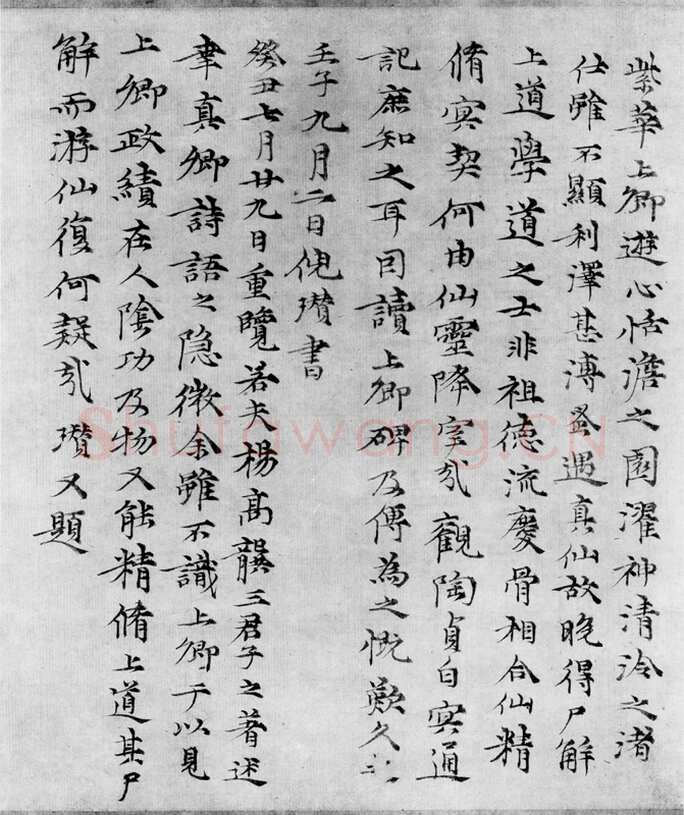 紫華上卿遊心恬澹之園濯神清泠之渚
仕雖不顯利澤甚溥蚤遇真仙故晚得尸解
上道學道之士非祖德流慶骨相合仙精
脩冥契何由仙靈降室哉觀陶貞白冥通
記庶知之耳因讀上卿碑及傳為之慨歎久之
壬子九月二日倪瓚書
癸丑七月廿九日重覽若夫楊高龔三君子之著述
韋真卿詩語之隐微余雖不識上卿于以見
上卿政績在人陰功及物又能精脩上道其尸
解而游仙復何疑哉瓚又題
Shufawang.CN